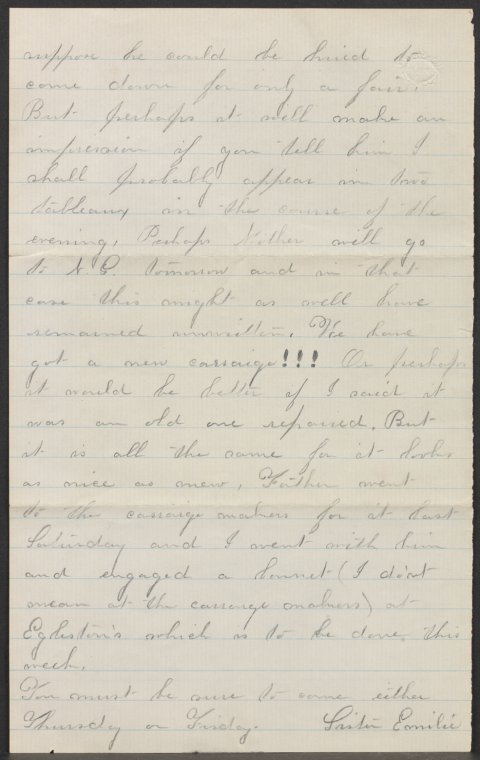 suppose he could be hired to
come down for only a fair.
But perhaps it will make an
impression if you tell him I
shall probably appear in two
tableaux in the course of the
evening. Perhaps Mother will go
to N. G. tomorrow and in that
case this might as well have
remained unwritten. We have
got a new carraige!!! Or perhaps
it would be better if I said it
was an old one repaired. But
it is all the same for it looks
as nice as new. Father went
to the carraige makers for it last
Saturday and I went with him
and engaged a bonnet (I do'nt
mean at the carraige makers) at
Egleston's which is to be done this
week.
You must be sure to come either
Thursday or Friday. Sister Emilie